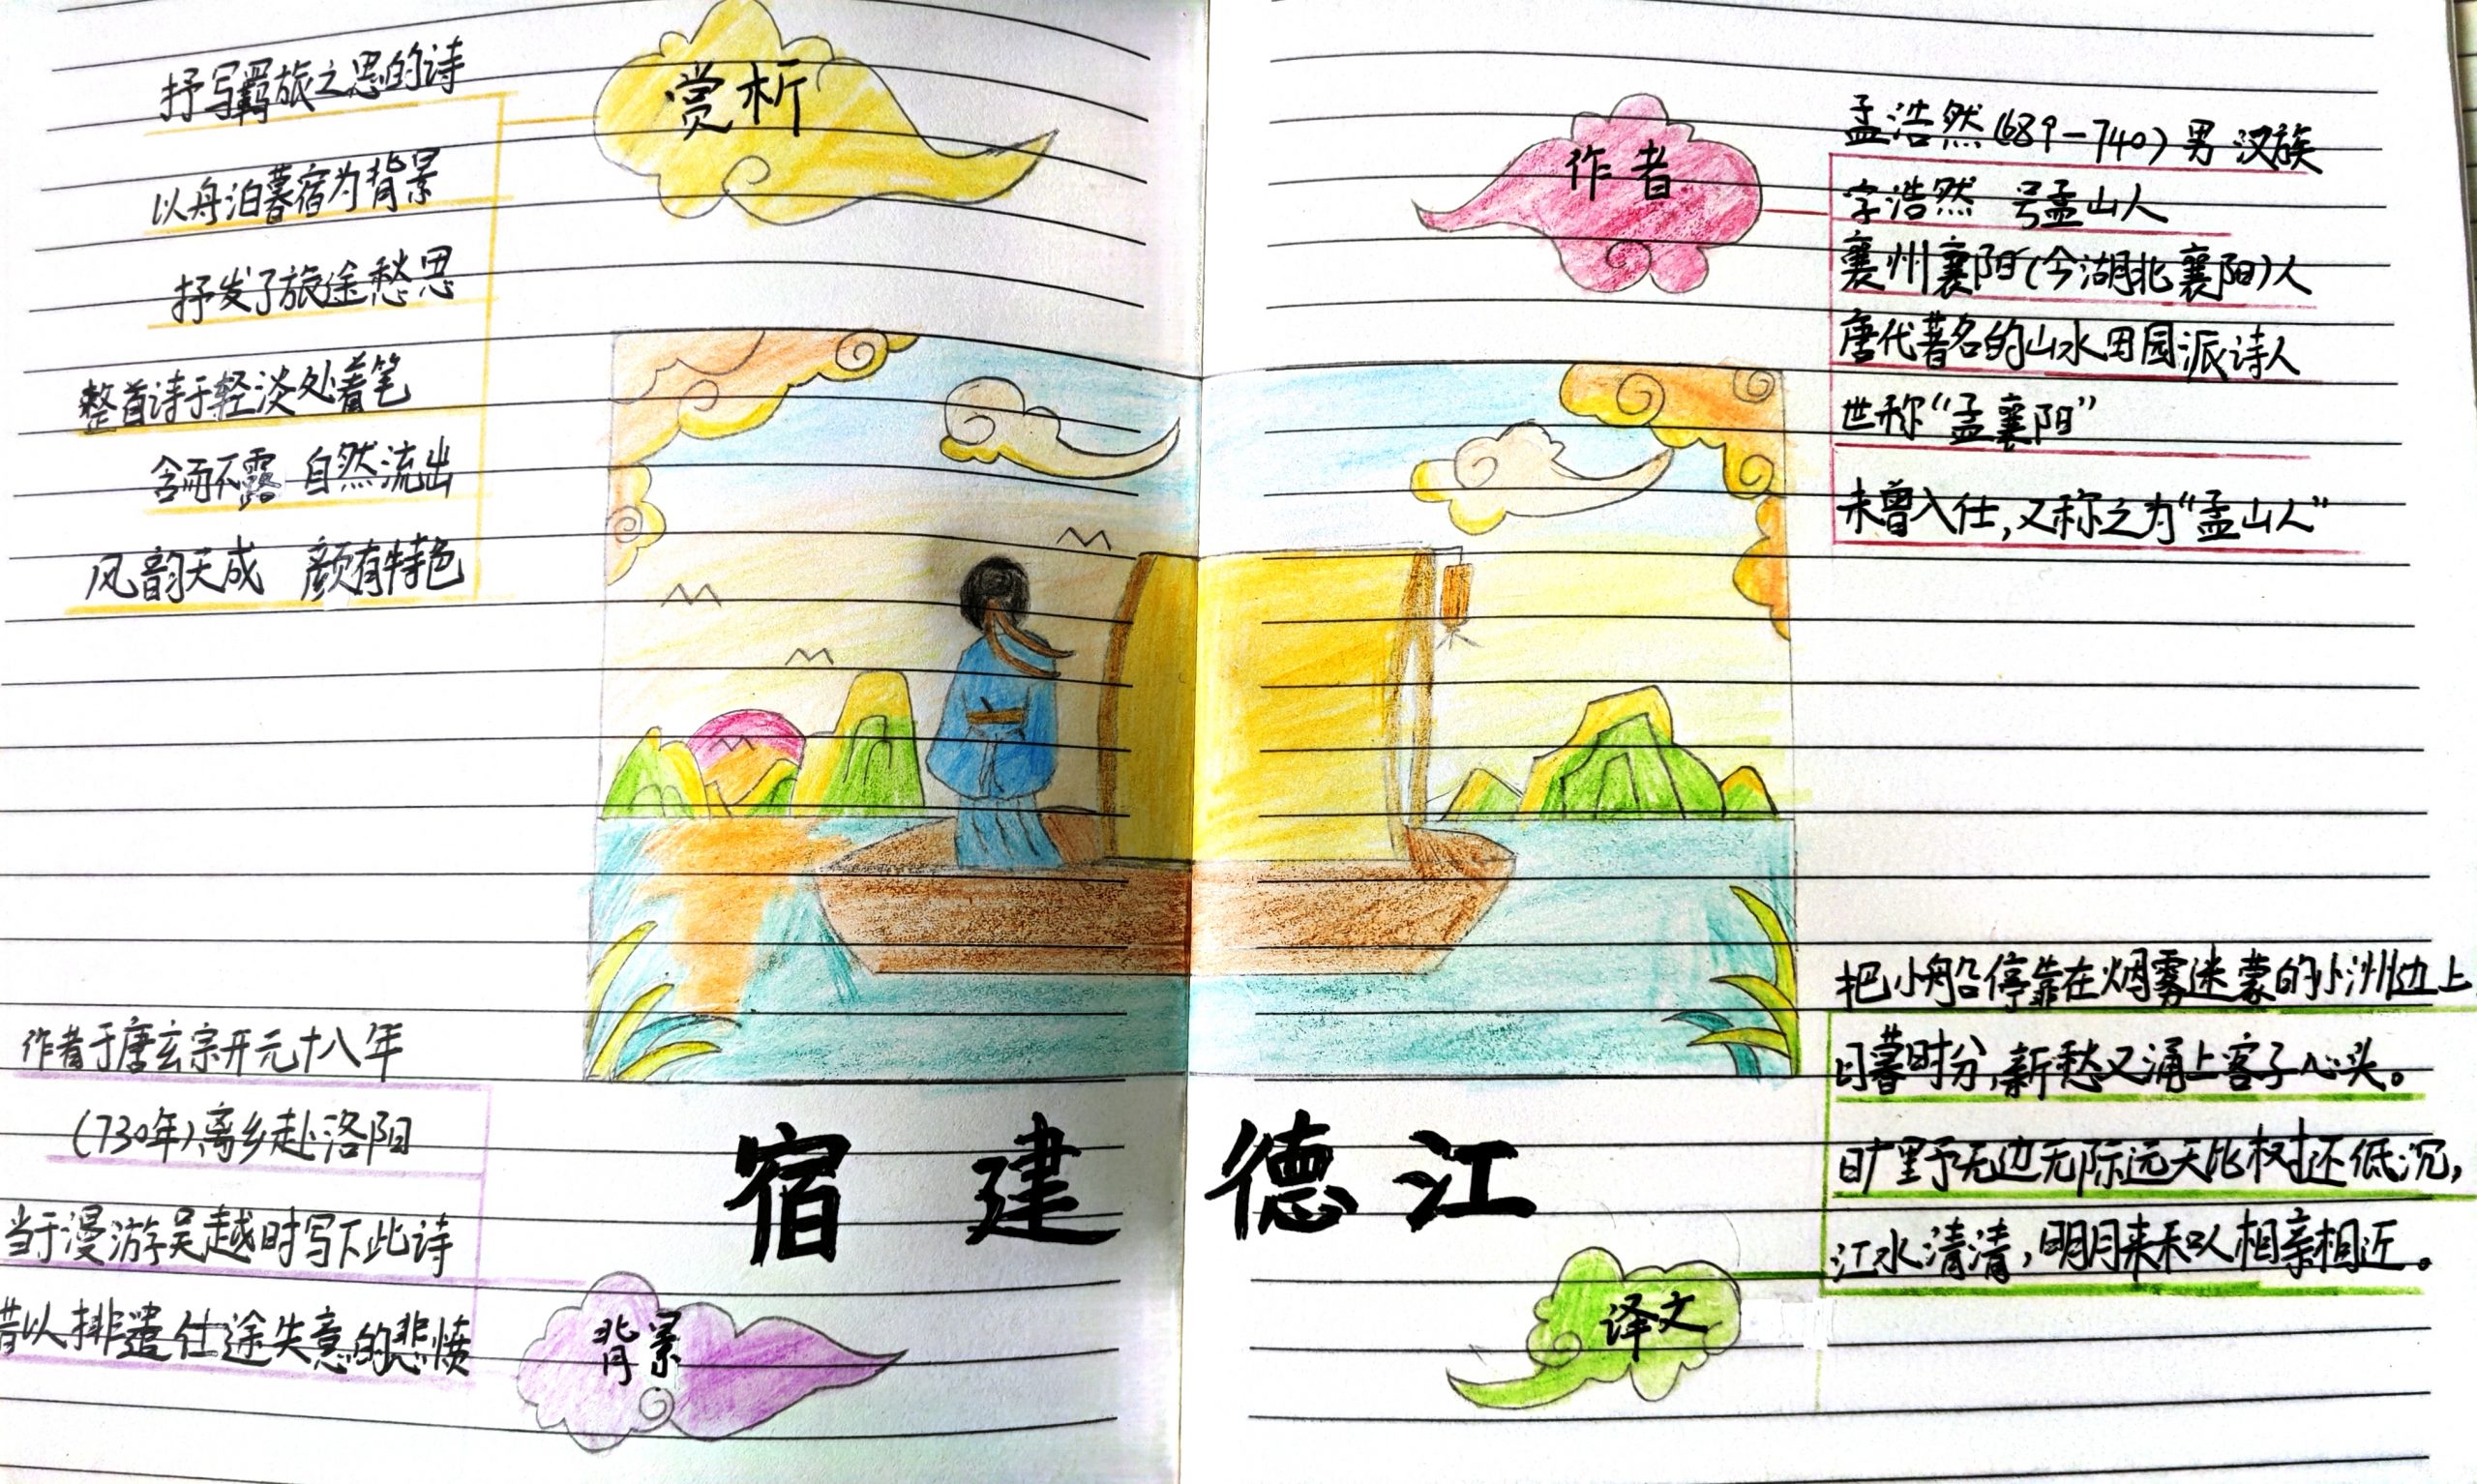 赏析
抒写羁旅之思的诗
以舟泊暮宿为背景
抒发了旅途愁思
整首诗于轻淡处着笔
含而不露 自然流出
风韵天成 颇有特色
作者
孟浩然(689-740)男 汉族
字浩然 号孟山人
襄州襄阳(今湖北襄阳)人
唐代著名的山水田园派诗人
世称“孟襄阳”
未曾入仕,又称之为“孟山人”
宿建德江
背景
作者于唐玄宗开元十八年
(730年)离乡赴洛阳
当于漫游吴越时写下此诗
借以排遣仕途失意的悲愤
译文
把小船停靠在烟雾迷蒙的小洲边上
日暮时分,新愁又涌上客子心头。
旷野无边无际远天比树还低沉,
江水清清,明月来和人相亲相近。